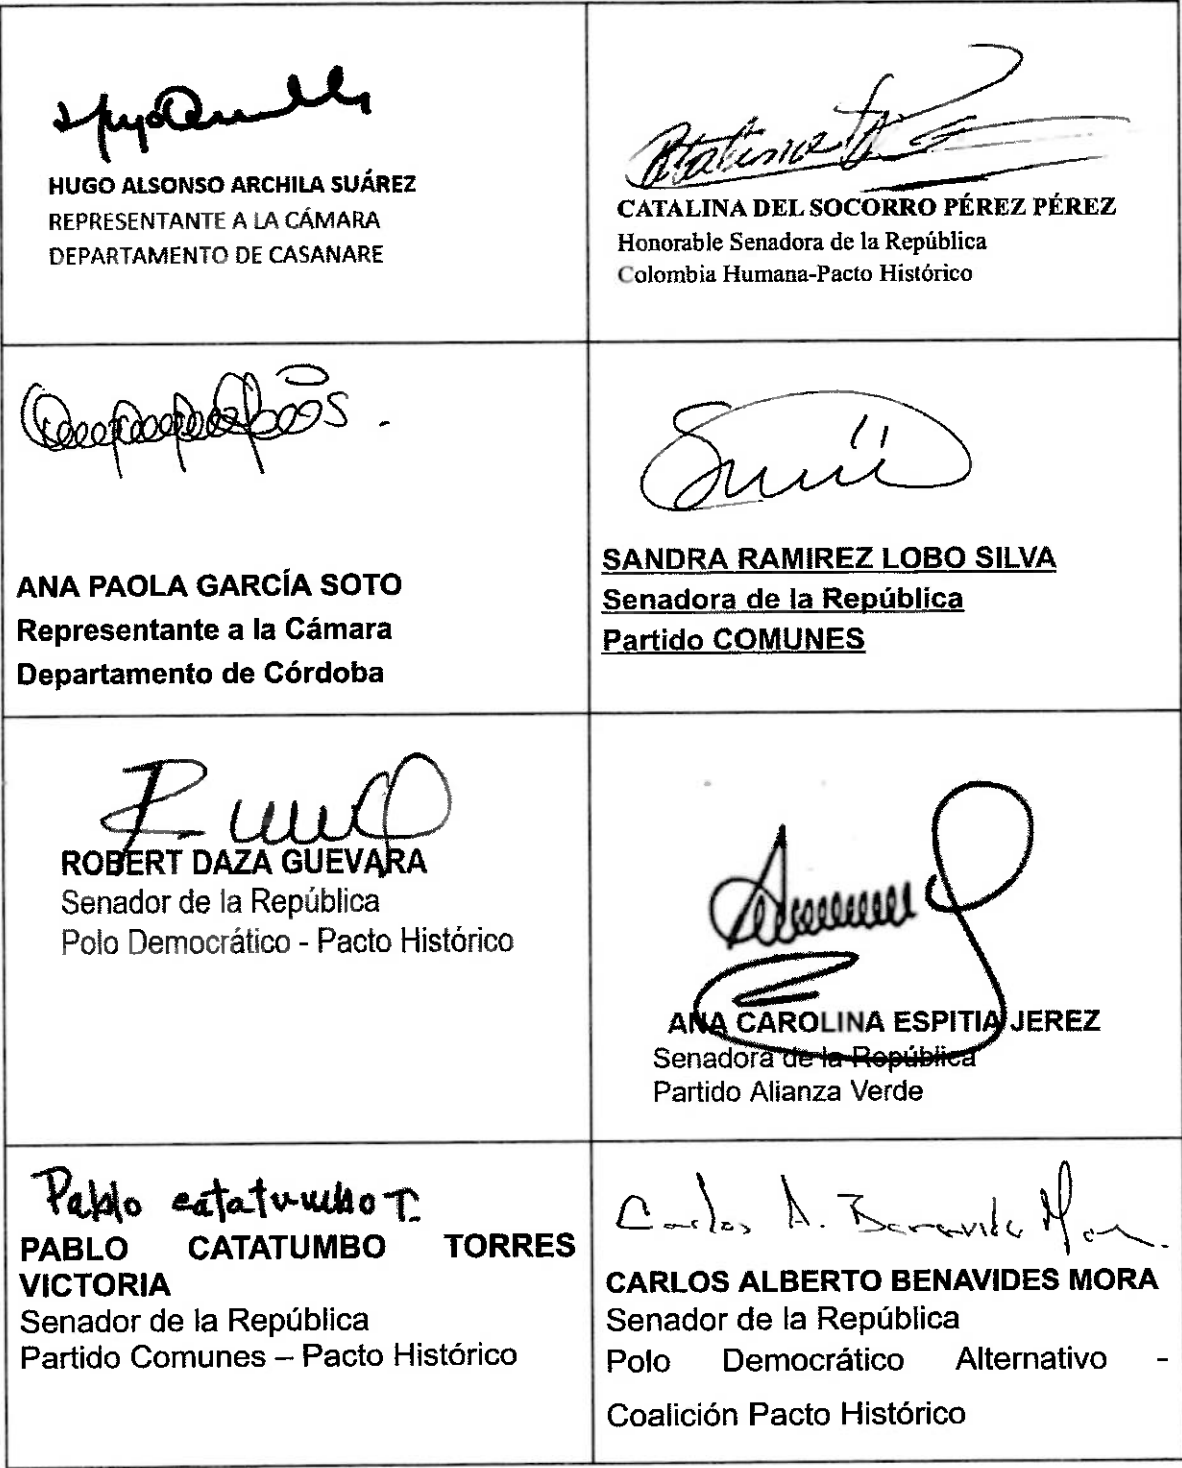 HUGO ALSONSO ARCHILA SUÁREZ
REPRESENTANTE A LA CÁMARA
DEPARTAMENTO DE CASANARE
CATALINA DEL SOCORRO PÉREZ PÉREZ
Honorable Senadora de la República
Colombia Humana-Pacto Histórico
ANA PAOLA GARCÍA SOTO
Representante a la Cámara
Departamento de Córdoba
SANDRA RAMIREZ LOBO SILVA
Senadora de la República
Partido COMUNES
ROBERT DAZA GUEVARA
Senador de la República
Polo Democrático - Pacto Histórico
ANA CAROLINA ESPITIA JEREZ
Senadora de la República
Partido Alianza Verde
Pablo catatumbo T.
PABLO CATATUMBO TORRES
VICTORIA
Senador de la República
Partido Comunes – Pacto Histórico
Carlos A. Benavides Mora
CARLOS ALBERTO BENAVIDES MORA
Senador de la República
Polo Democrático Alternativo -
Coalición Pacto Histórico